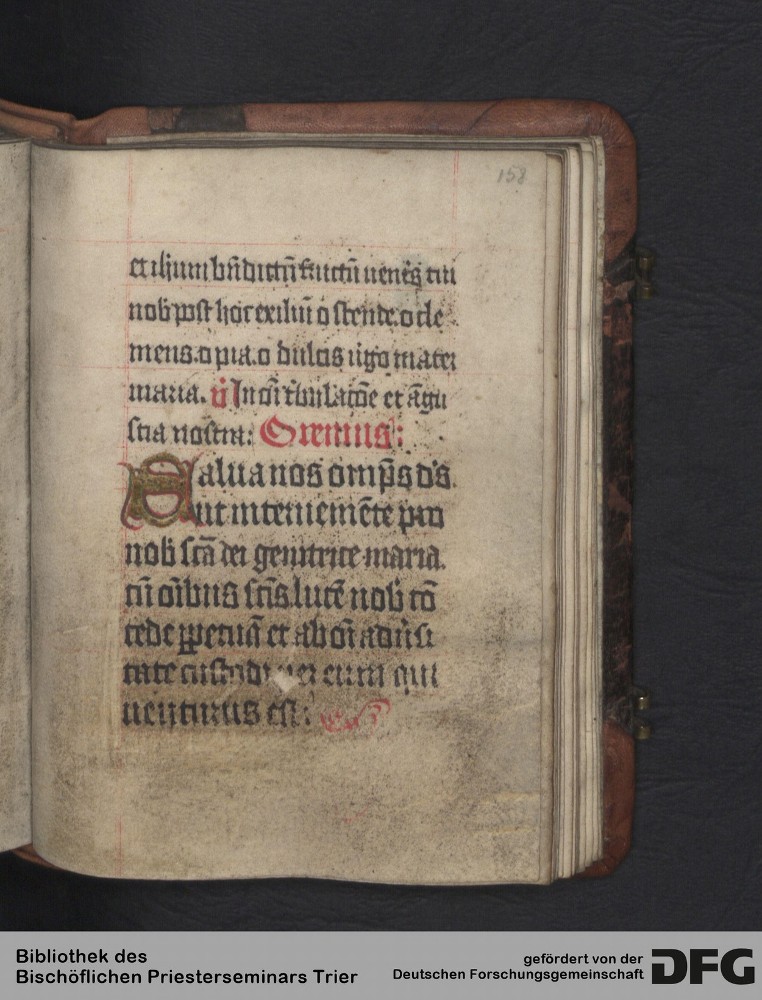 158
et ihum bn̄dictū fructū uentꝫ tui
nob̄ post hoc exiliū ostende. o cle
mens. o pia. o dulcis ūgo mater
maria. v̄ In oī t̄bulacōe et āgu
stia nostra: Oremus:
Salua nos omp̄s ds̄.
ut interueniente pro
nob̄ scā dei genitrice maria.
cū oībus scīs. lucē nob̄ cō
cede ꝑpetuā et ab oī aduersi
tate custodi per eum qui
uenturus est:
Bibliothek des
Bischöflichen Priesterseminars Trier
gefördert von der
Deutschen Forschungsgemeinschaft DFG